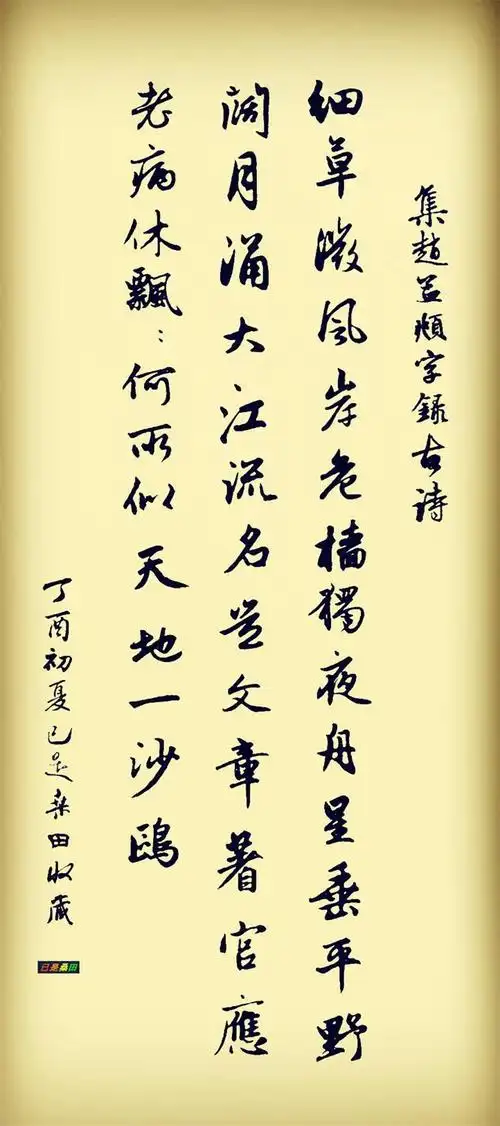 集趙孟頫字録古诗
细草微风岸危檣獨夜舟星垂平野
阔月涌大江流名岂文章著官應
老病休飄:何所似天地一沙鷗
丁酉初夏已是桑田收藏
已是桑田